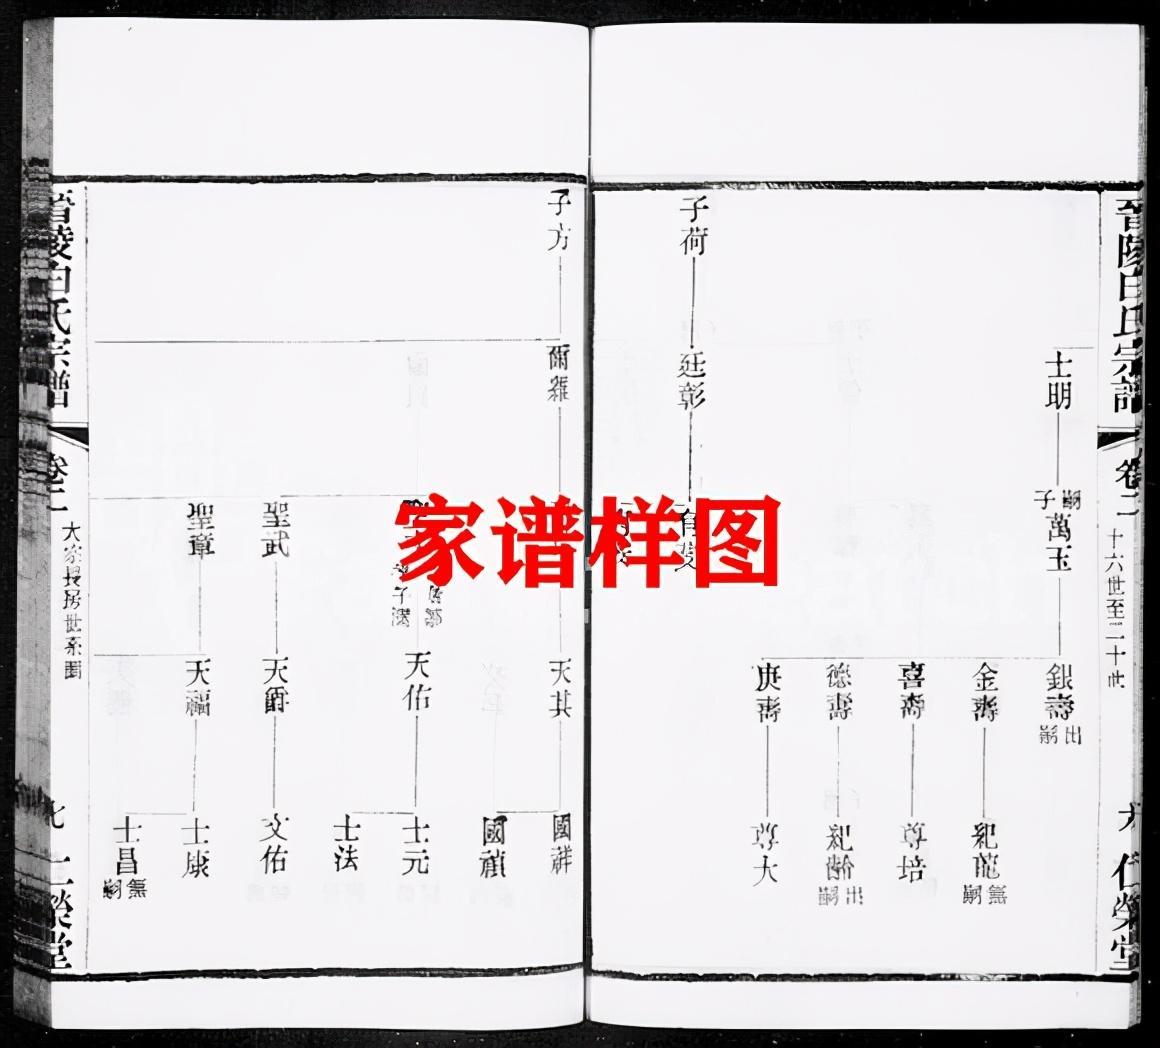 晉陵白氏宗譜
卷二
十六世至二十世
六
仁榮堂
士明
嗣子
萬玉
銀壽
出嗣
金壽
紀龍
無嗣
喜壽
尊培
德壽
紀齡
出嗣
庚壽
尊大
子荷
廷彰
有斐
家谱样图
子方
爾雅
天其
國祥
國禎
天佑
士元
士法
聖武
天爵
文佑
聖章
天福
士康
士昌
無嗣
晉陵白氏宗譜
卷二
大宗長房世系圖
七
仁榮堂